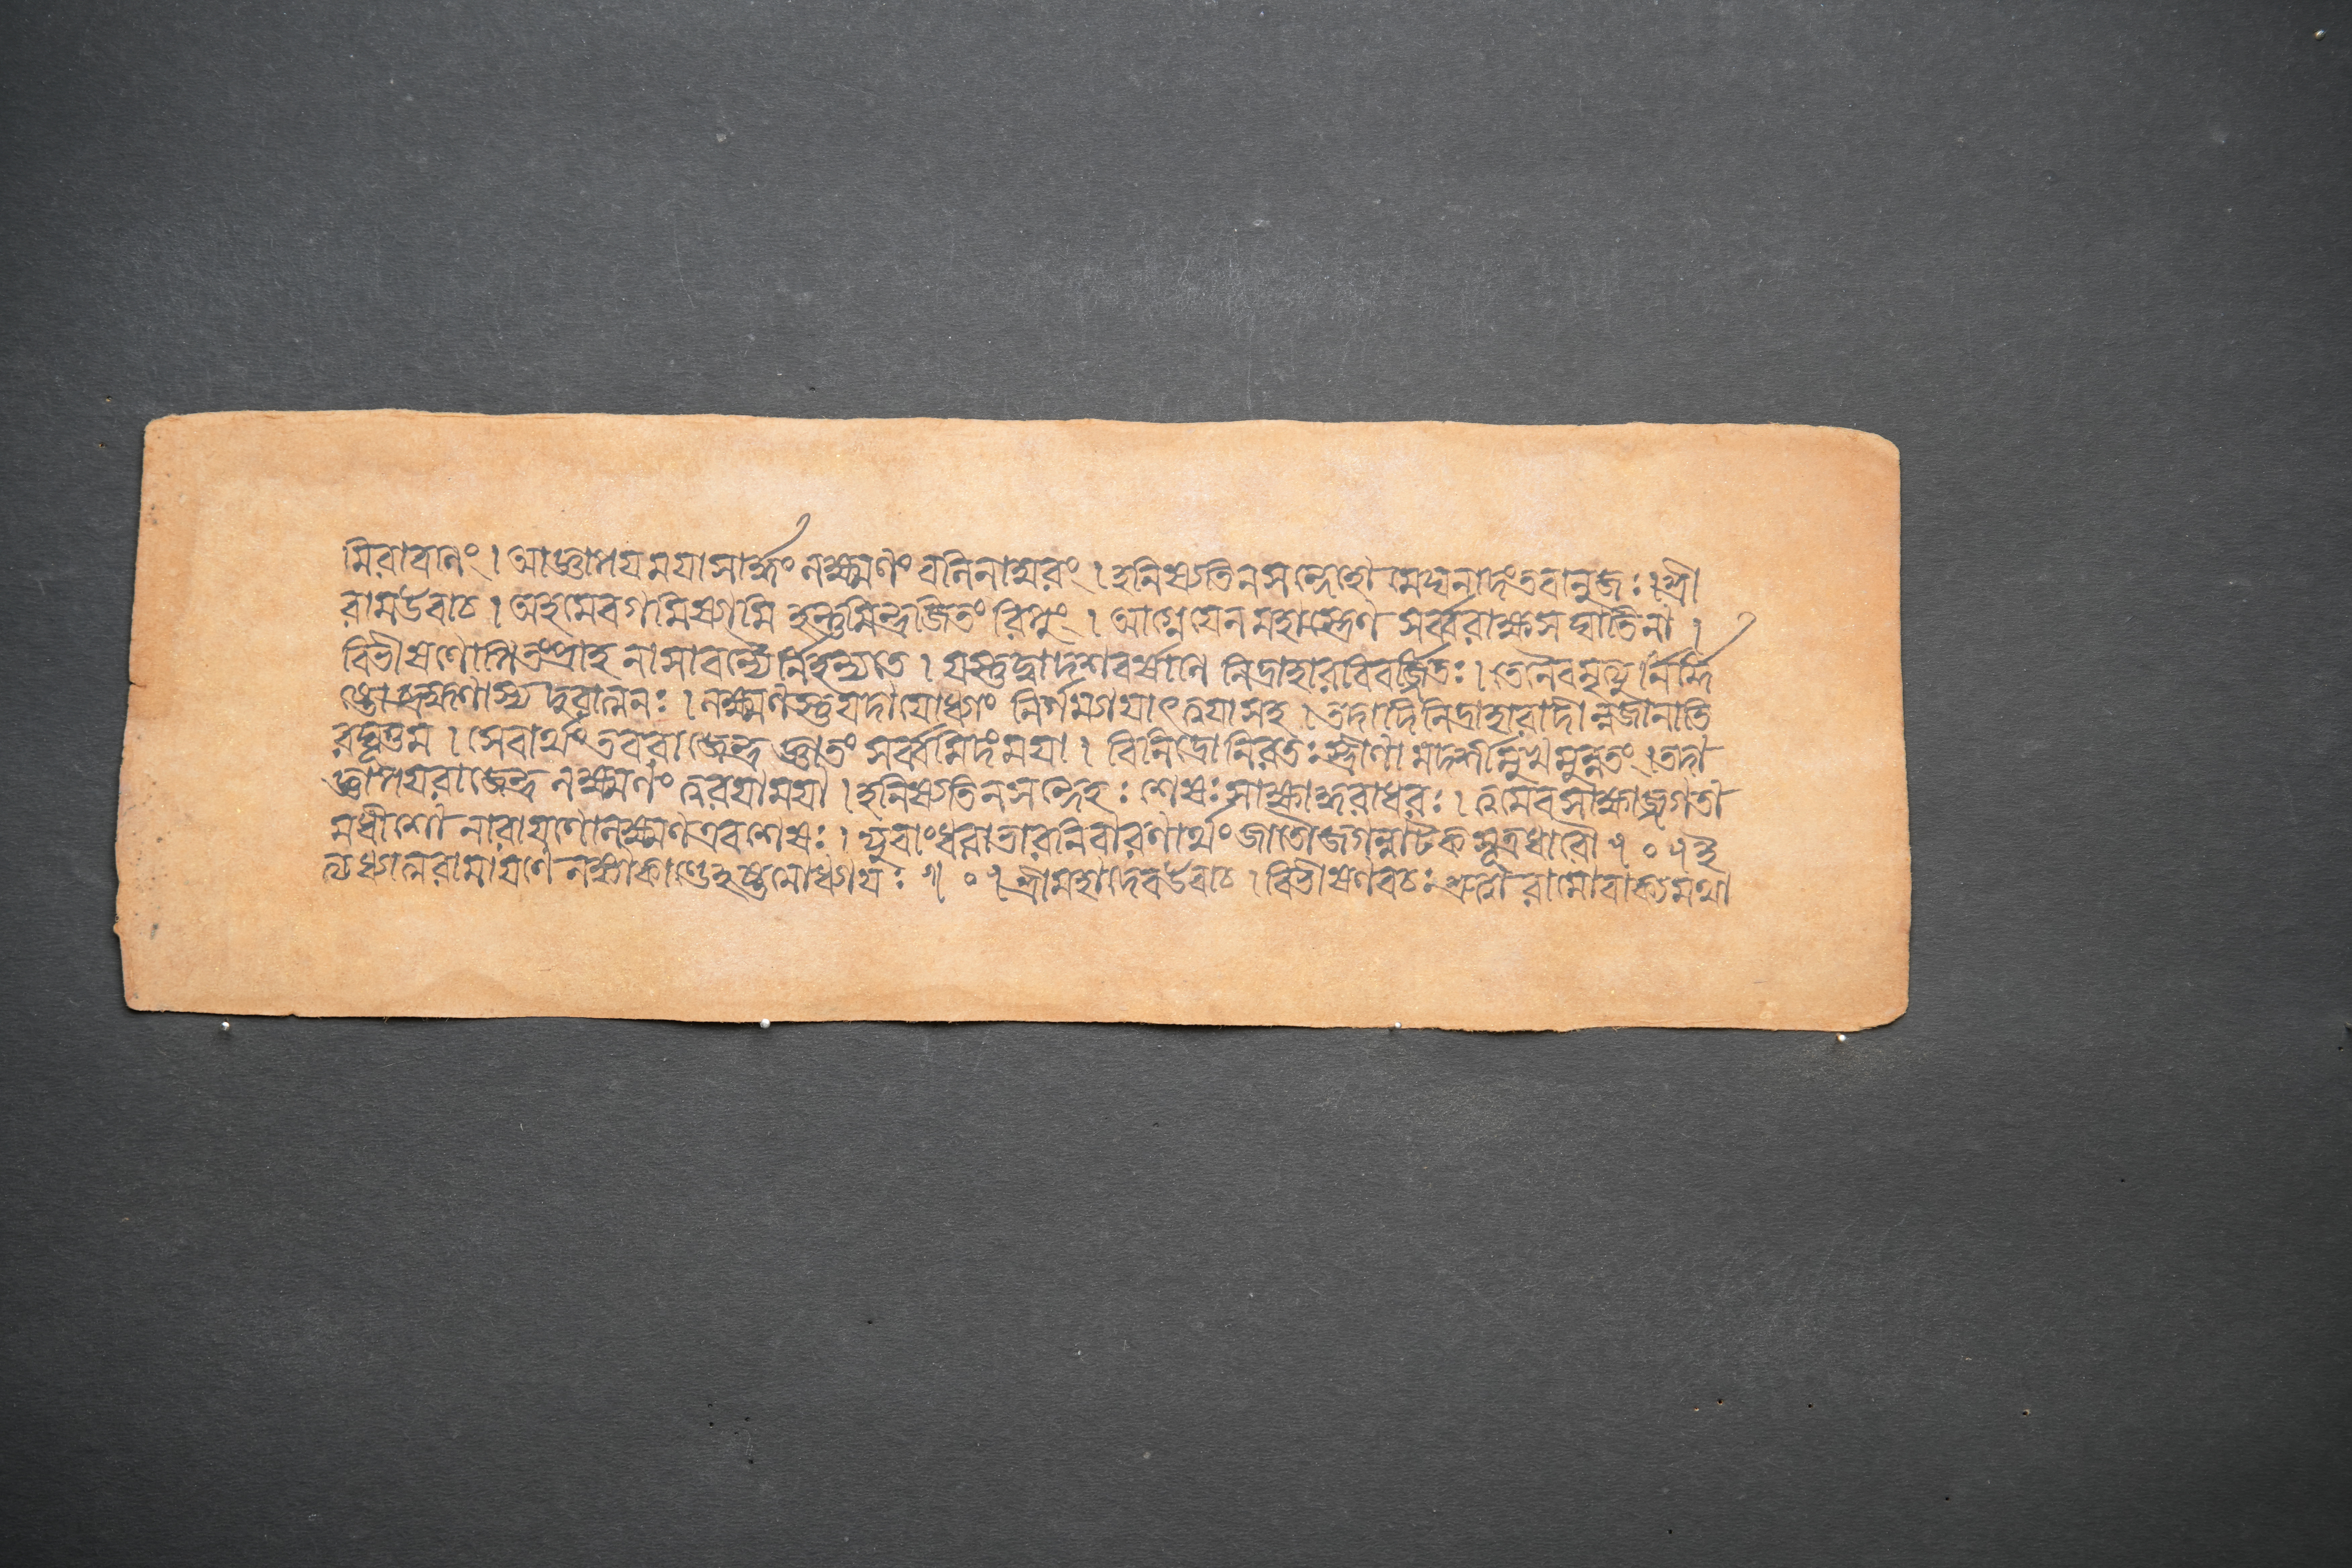 মিরাবালং । আজ্ঞাপয় ময়া সার্দ্ধং লক্ষ্মণং বলিনাম্বরং । হনিষ্যতি ন সন্দেহো মেঘনাদং তবানুজঃ । শ্রী
রাম উবাচ । অহমেবাগমিষ্যামি হন্তুমিন্দ্রজিতং রিপুং । আগ্নেয়েন মহাস্ত্রেণ সর্ব্বরাক্ষসঘাতিনা ।
বিভীষণোপি তং প্রাহ নাসাবন্যৈর্নিহন্যতে । যস্তু দ্বাদশবর্ষাণি নিদ্রাহারবিবর্জ্জিতঃ । তেনৈব মৃত্যুর্নির্দ্দি
ষ্টো ব্রহ্মণাস্য দুরাত্মনঃ । লক্ষ্মণস্তু যদাযোধ্যাং নির্গম্যায়াৎ ত্বয়া সহ । তদাদি নিদ্রাহারাদীন্ন জানাতি
রঘূত্তম । সেবার্থং তব রাজেন্দ্র জ্ঞাতং সর্ব্বমিদং ময়া । বিনিদ্রো নিরতঃ স্ত্রীণামদর্শীন্মুখমুন্নতং । তদা
জ্ঞাপয় রাজেন্দ্র লক্ষ্মণং ত্বরয়া ময়া । হনিষ্যতি ন সন্দেহঃ শেষঃ সাক্ষাদ্ধরাধরঃ । ত্বমেব সাক্ষাজ্জগতা
মধীশো নারায়ণো লক্ষ্মণ এব শেষঃ । যুবাং ধরাভারনিবারণার্থং জাতৌ জগন্নাটকসূত্রধারৌ ॥ ০ ॥ ই
ত্যধ্যাত্মরামায়ণে লঙ্কাকাণ্ডে অষ্টমোধ্যায়ঃ ॥ ০ ॥ শ্রীমহাদেব উবাচ । বিভীষণবচঃ শ্রুত্বা রামো বাক্যমথা